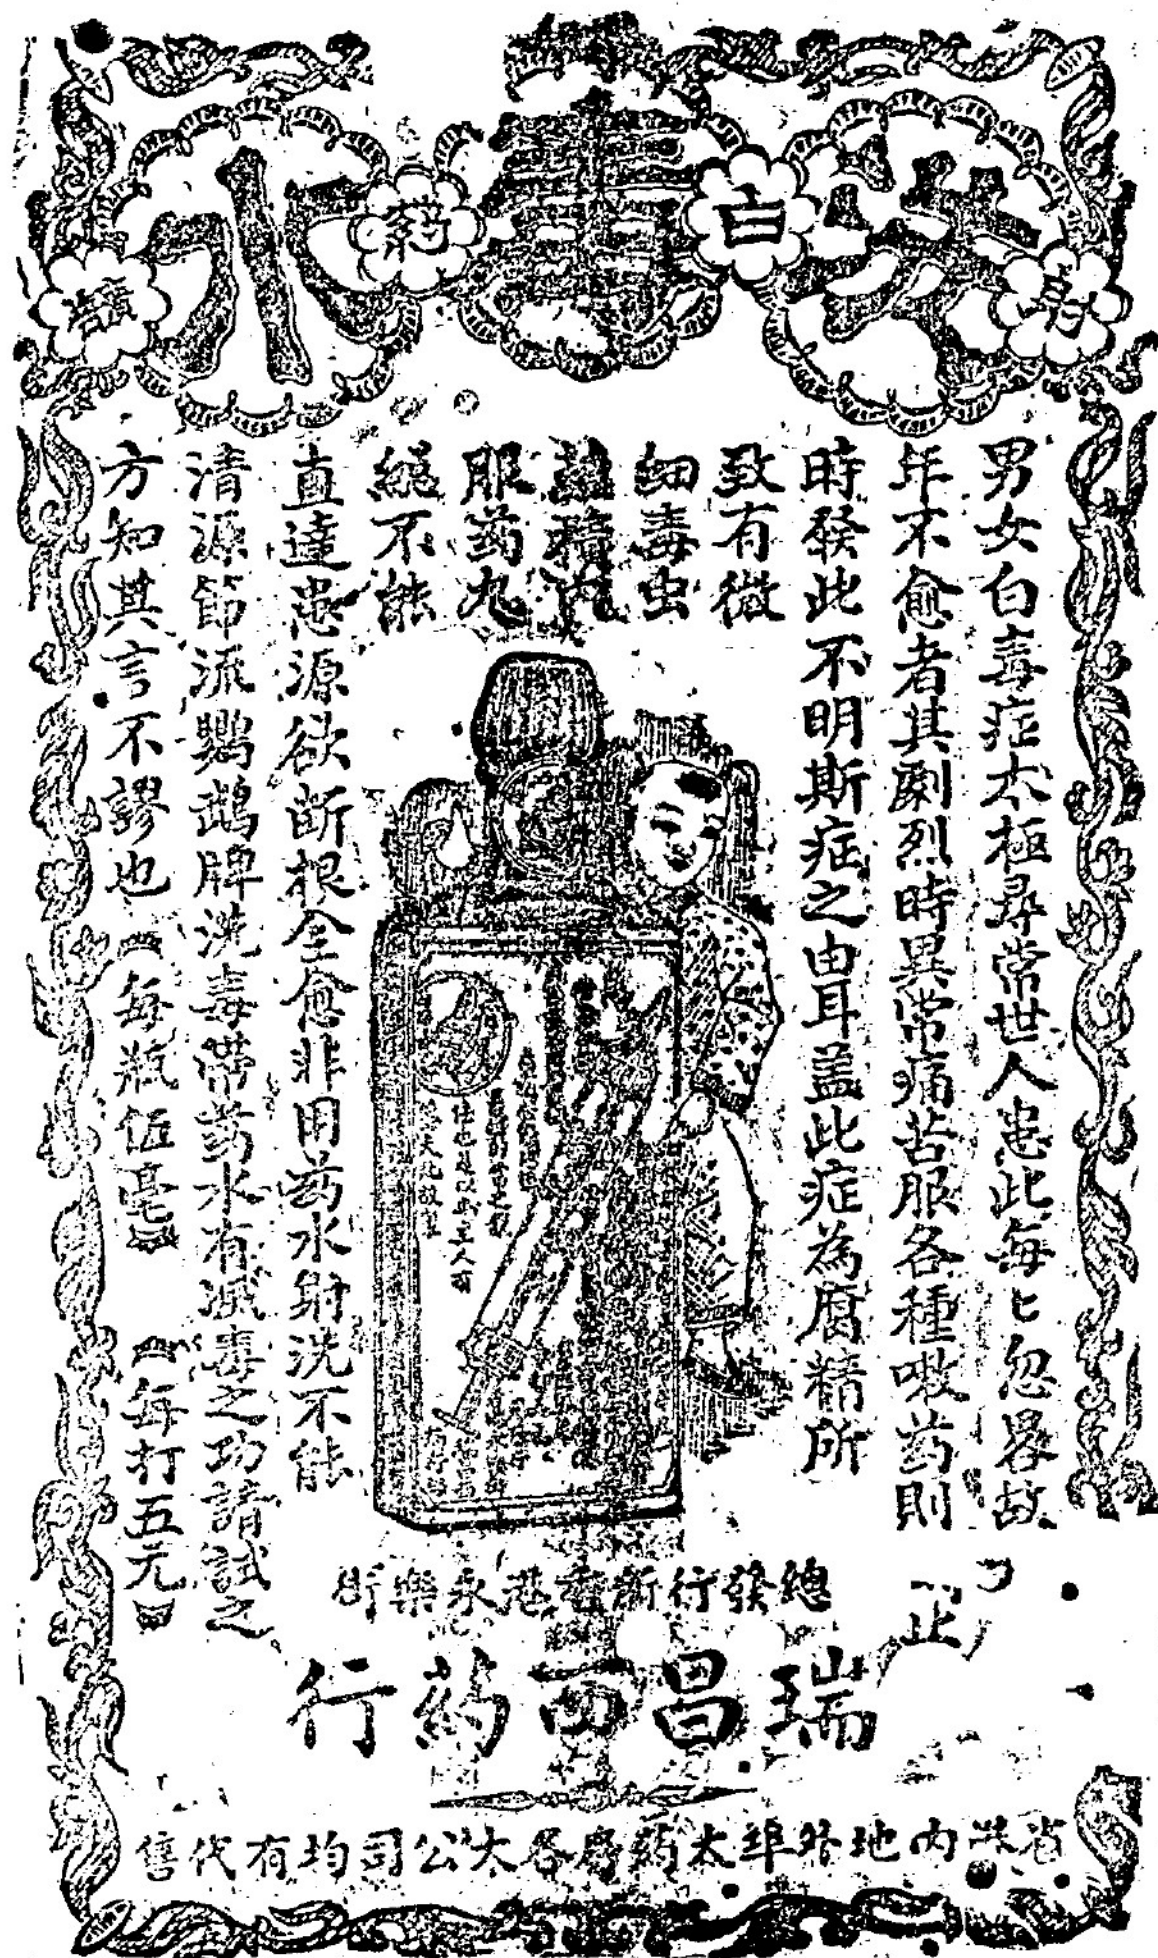 射洗白毒药水讀
男女白毒症本極尋常世人患此每〻忽畧故
年不愈者其劇烈時異常痛苦服各種啖药則
時發此不明斯症之由耳盖此症為腐精所
致有微
細毒虫
服药丸
絕不能
直達患源欲断根全愈非用药水射洗不能
清源節流鸚鵡牌洗毒帶药水有滅毒之功請試之
方知其言不謬也【每瓶伍毫】【每打五元】
總發行所香港永樂街
瑞昌西药行
省港內地外埠大药房各大公司均有代售